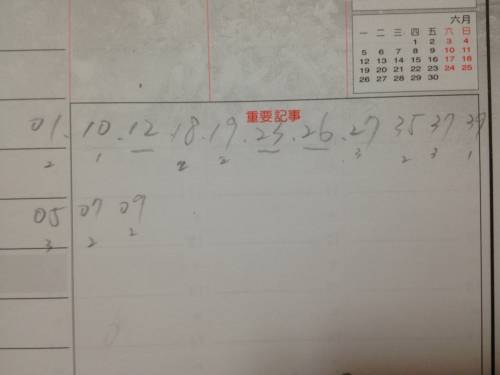 六月
一 二 三 四 五 六 日
1 2 3 4
5 6 7 8 9 10 11
12 13 14 15 16 17 18
19 20 21 22 23 24 25
26 27 28 29 30
重要記事
01. 10. 12 18. 19. 23. 26. 27 35 37 39
2 1 2 2 3 2 3 1
05 07 09
3 2 2